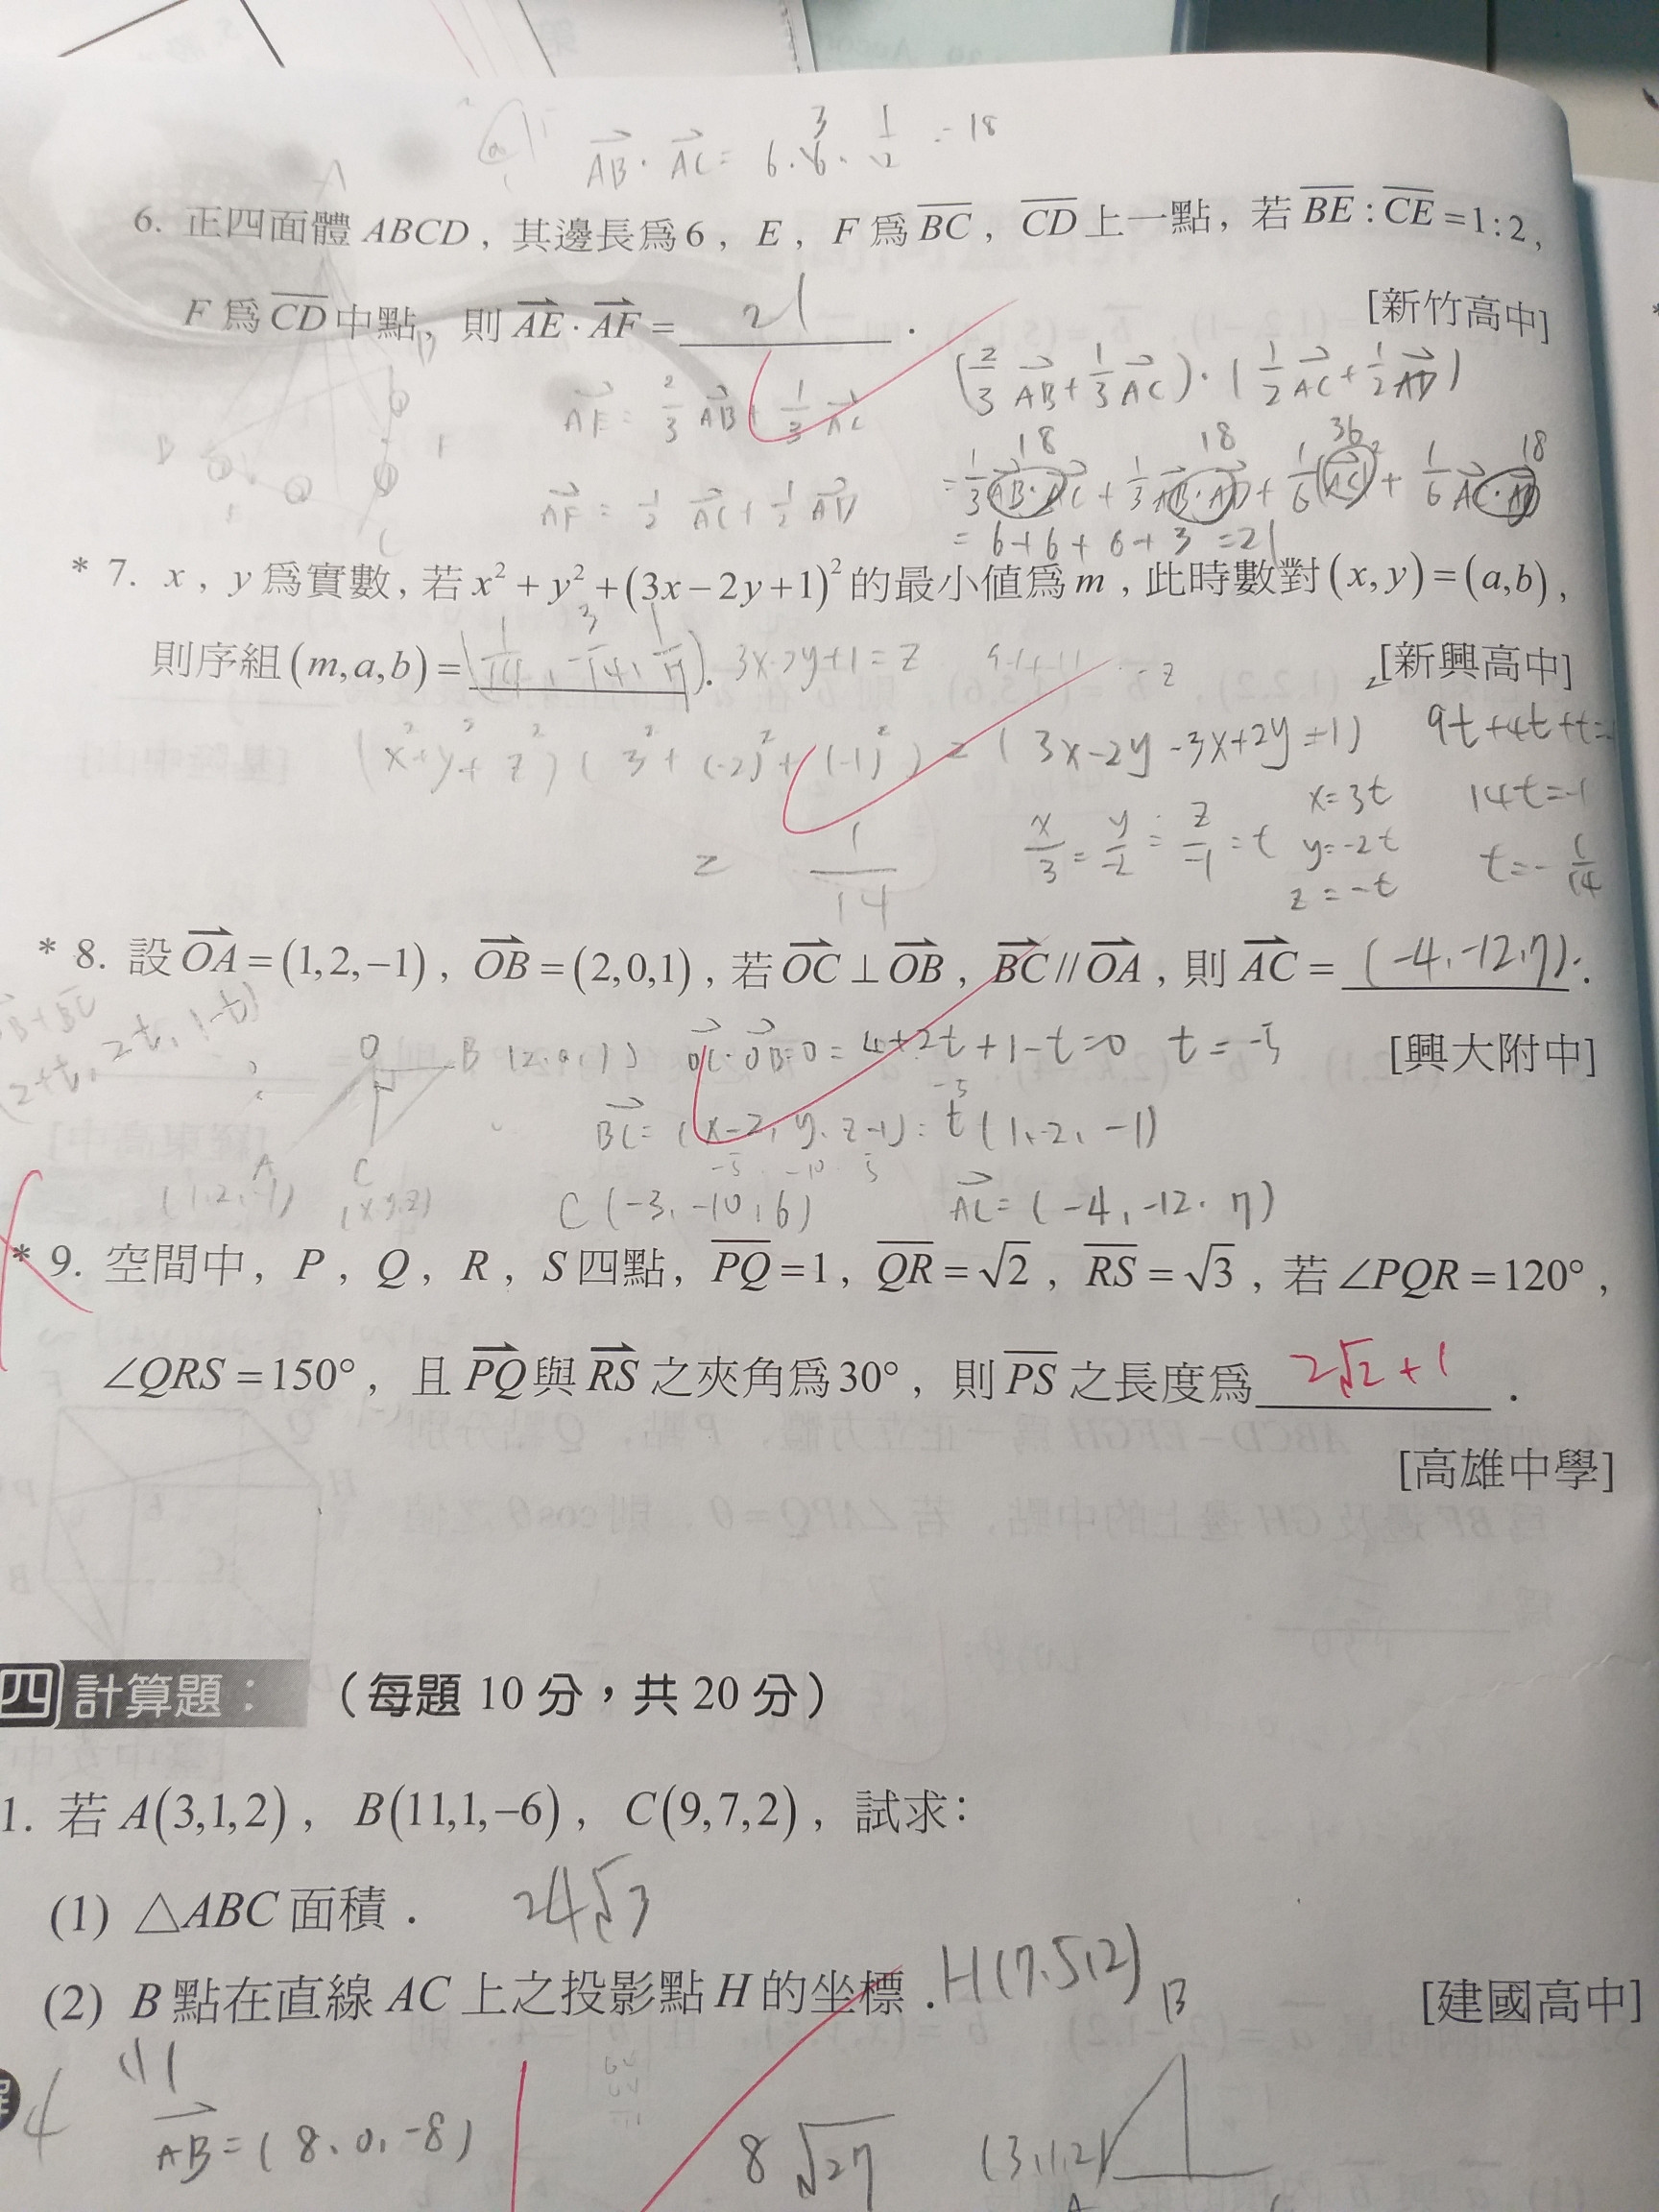 AB · AC = 6 · 6 · 1/2 = 18
3
6. 正四面體 ABCD，其邊長為6，E，F 為 BC，CD 上一點，若 BE : CE = 1 : 2，
F 為 CD 中點，則 AE · AF = 21 . [新竹高中]
(2/3 AB + 1/3 AC) · (1/2 AC + 1/2 AD)
AE = 2/3 AB + 1/3 AC
18 18 36 18
= 1/3 AB · AC + 1/3 AB · AD + 1/6 |AC|² + 1/6 AC · AD
AF = 1/2 AC + 1/2 AD
= 6 + 6 + 6 + 3 = 21
* 7. x，y 為實數，若 x² + y² + (3x − 2y + 1)² 的最小值為 m，此時數對 (x, y) = (a, b)，
則序組 (m, a, b) = (1/14, -3/14, 1/7) . 3x-2y+1=z [新興高中]
(x²+y²+z²)(3²+(-2)²+(-1)²) = (3x-2y-3x+2y-1)² 9t+4t+t=-1
x=3t 14t=-1
= 1/14 x/3 = y/-2 = z/-1 = t y=-2t t=-1/14
z=-t
* 8. 設 OA = (1, 2, −1)，OB = (2, 0, 1)，若 OC ⊥ OB，BC // OA，則 AC = (-4, -12, 7) .
OB+BC
(2+t, 2t, 1-t) O B (2,0,1) OC·OB=0 = 4+2t+1-t=0 t=-5 [興大附中]
-5
BC = (x-2, y, z-1) = t(1, 2, -1)
-5 -10 5
A C
(1,2,-1) (x,y,z) C(-3, -10, 6) AC = (-4, -12, 7)
* 9. 空間中，P，Q，R，S 四點，PQ = 1，QR = √2，RS = √3，若 ∠PQR = 120°，
∠QRS = 150°，且 PQ 與 RS 之夾角為 30°，則 PS 之長度為 2√2+1 .
[高雄中學]
四 計算題：（每題 10 分，共 20 分）
1. 若 A(3, 1, 2)，B(11, 1, −6)，C(9, 7, 2)，試求：
(1) △ABC 面積． 24√3
(2) B 點在直線 AC 上之投影點 H 的坐標． H(7,5,2) [建國高中]
B
(1)
AB = (8, 0, -8) 8√27 (3,1,2)
A C